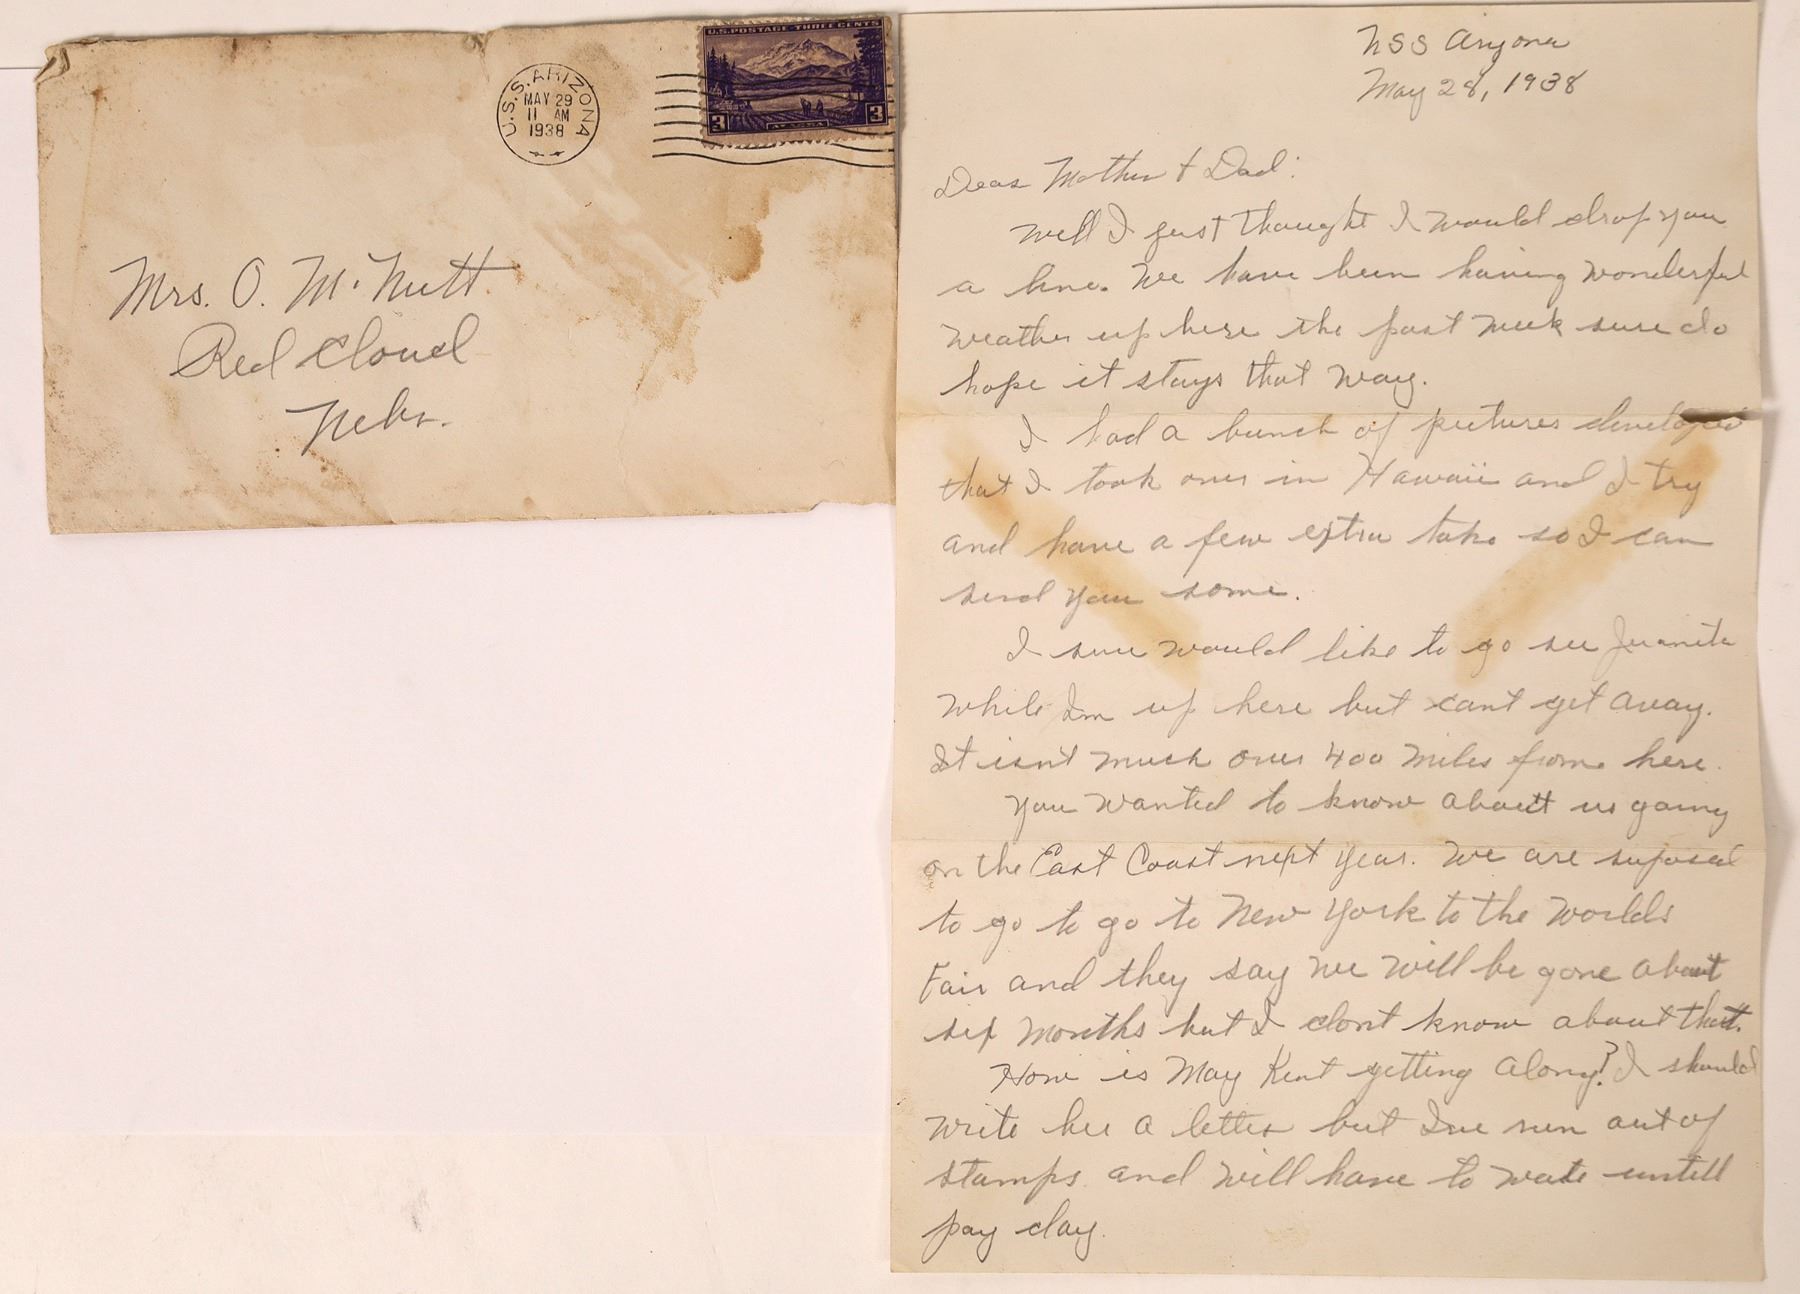 U.S.S. ARIZONA
MAY 29
11 AM
1938
U.S. POSTAGE THREE CENTS
3
3
ALASKA
Mrs. O. McNutt
Red Cloud
Nebr.
USS Arizona
May 28, 1938
Dear Mother & Dad:
Well I just thought I would drop you
a line. We have been having wonderful
weather up here the past week sure do
hope it stays that way.
I had a bunch of pictures developed
that I took over in Hawaii and I try
and have a few extra take so I can
send you some.
I sure would like to go see Juanita
while Im up here but cant get away.
It isn't much over 400 miles from here.
You wanted to know about us going
on the East Coast next year. We are suposed
to go to go to New York to the Worlds
Fair and they say we will be gone about
six months but I dont know about that.
How is May Kent getting along? I should
write her a letter but Ive run out of
stamps and will have to wate untill
pay day.